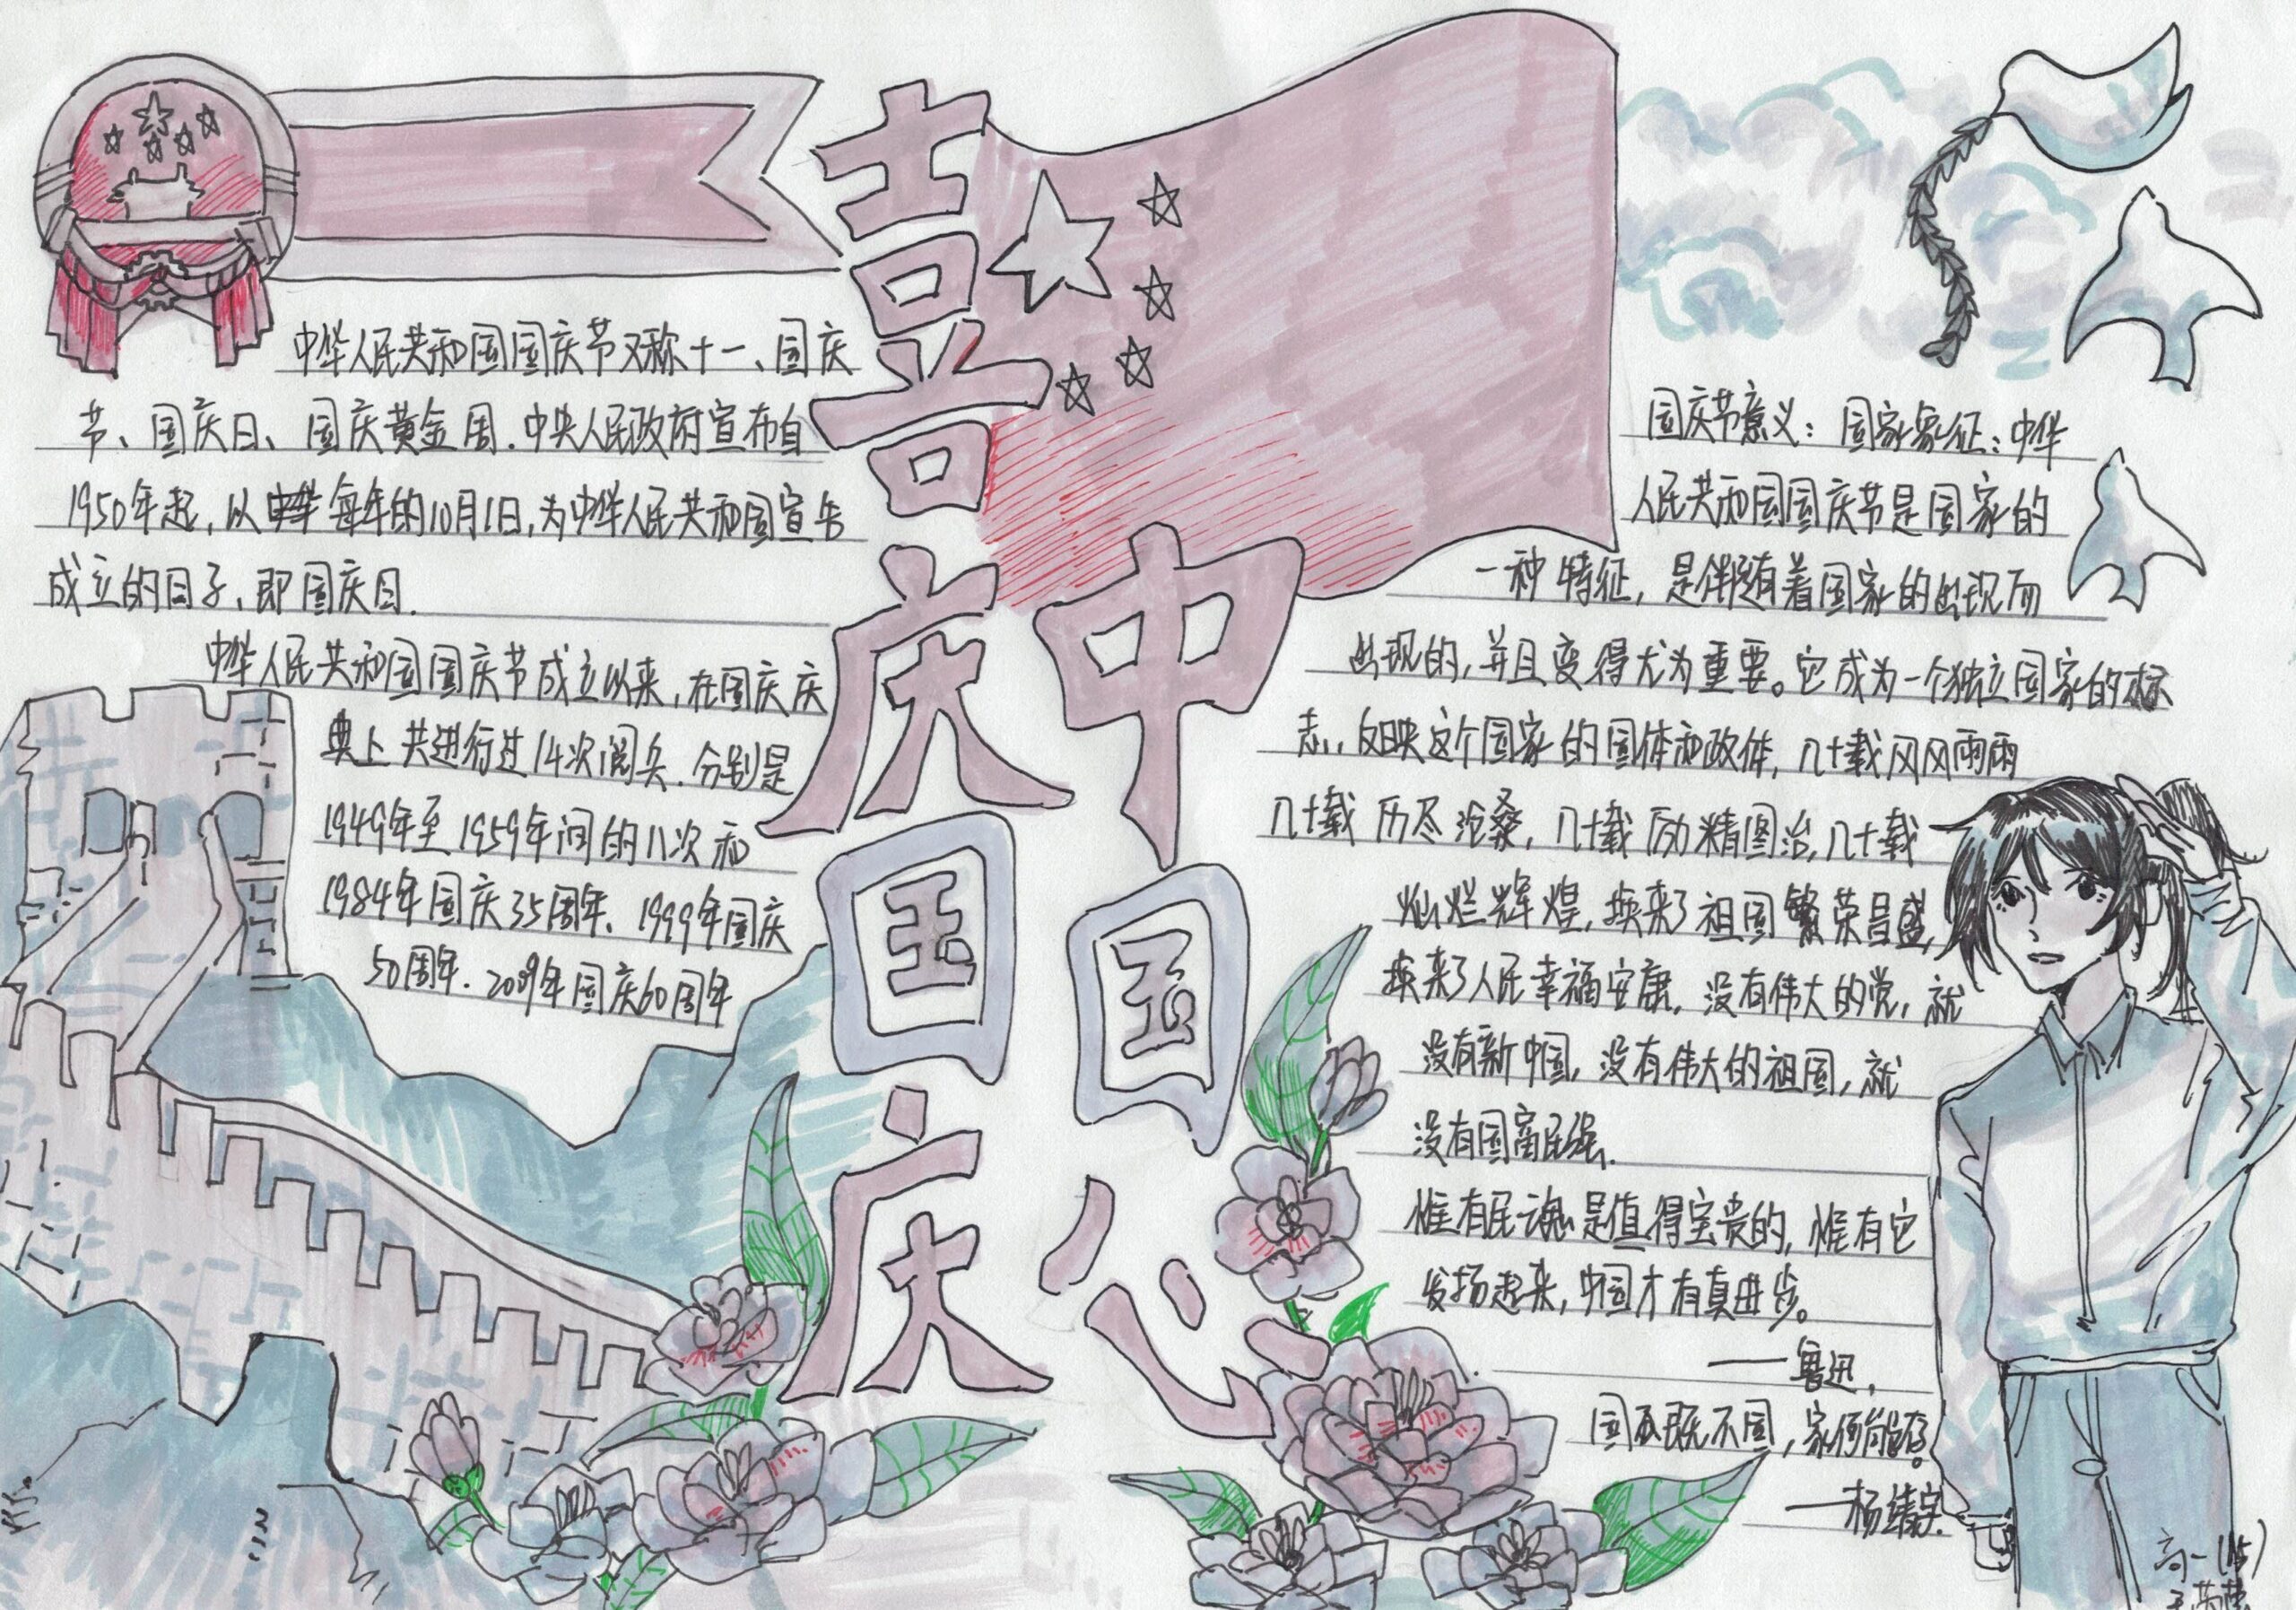 喜庆国庆
中国心
中华人民共和国国庆节又称十一、国庆
节、国庆日、国庆黄金周.中央人民政府宣布自
1950年起,以每年的10月1日,为中华人民共和国宣告
成立的日子、即国庆日.
中华人民共和国国庆节成立以来,在国庆庆
典上共进行过14次阅兵.分别是
1949年至1959年间的11次和
1984年国庆35周年、1999年国庆
50周年.2009年国庆60周年
国庆节意义:国家象征:中华
人民共和国国庆节是国家的
一种特征,是伴随有着国家的出现而
出现的,并且变得尤为重要。它成为一个独立国家的标
志,反映这个国家的国体和政体,几十载风风雨雨
几十载历尽沧桑,几十载励精图治,几十载
灿烂辉煌,换来了祖国繁荣昌盛,
换来了人民幸福安康,没有伟大的党,就
没有新中国,没有伟大的祖国,就
没有国富民强.
惟有民魂是值得宝贵的,惟有它
发扬起来,中国才有真进步。
——鲁迅.
国既不国,家何能存
——杨靖宇.
高一(15)